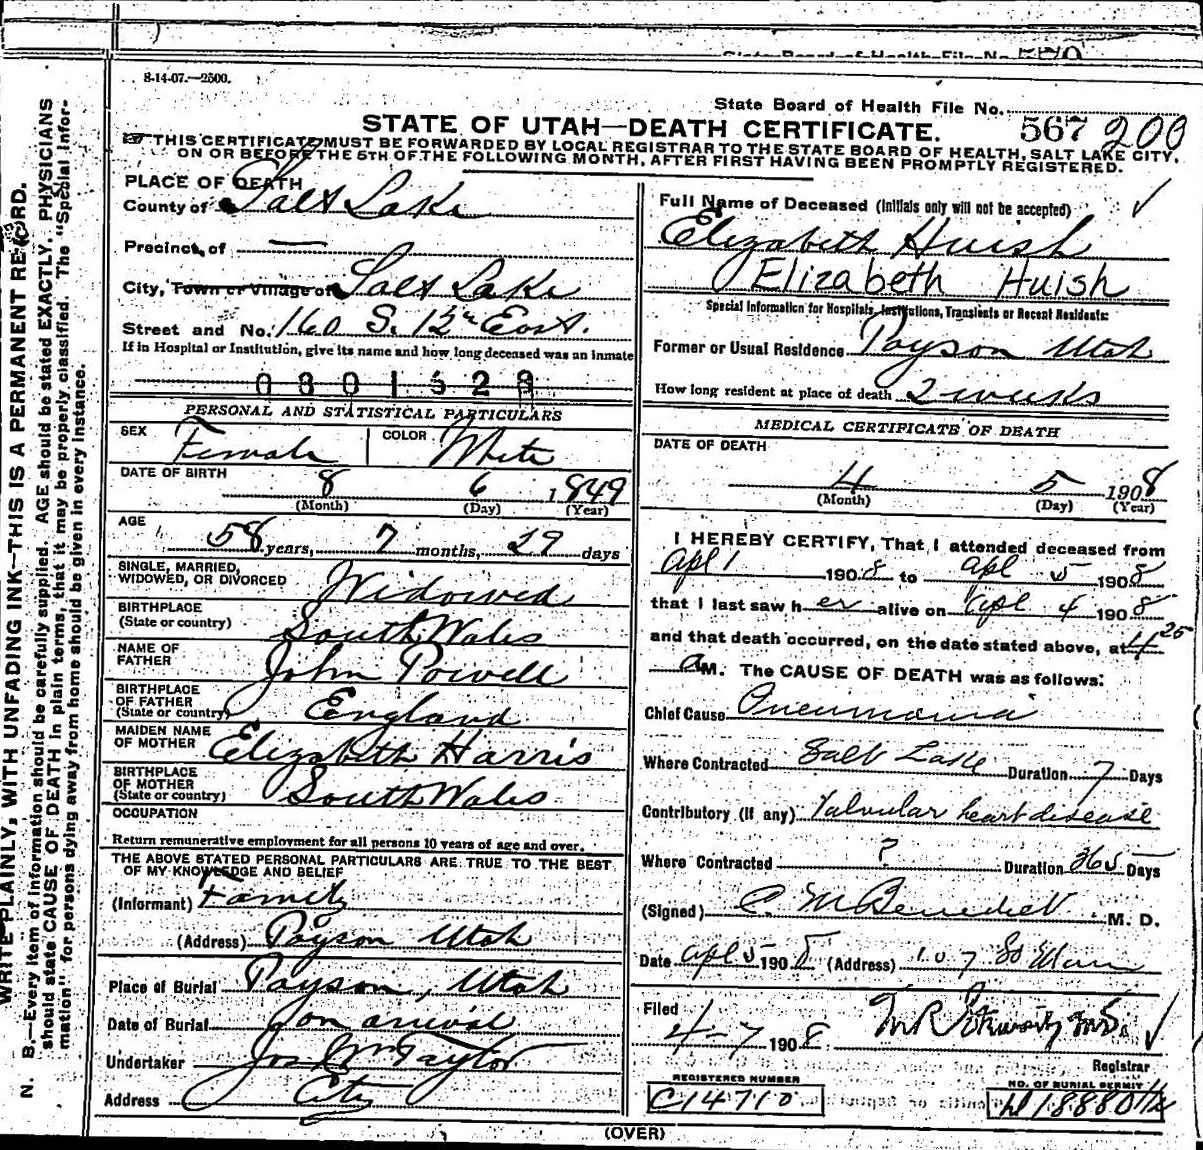 8-14-07.—2500.
State Board of Health File No.
567 200
STATE OF UTAH—DEATH CERTIFICATE.
THIS CERTIFICATE MUST BE FORWARDED BY LOCAL REGISTRAR TO THE STATE BOARD OF HEALTH, SALT LAKE CITY,
ON OR BEFORE THE 5TH OF THE FOLLOWING MONTH, AFTER FIRST HAVING BEEN PROMPTLY REGISTERED.
WRITE PLAINLY, WITH UNFADING INK—THIS IS A PERMANENT RECORD.
N. B.—Every item of information should be carefully supplied. AGE should be stated EXACTLY. PHYSICIANS
should state CAUSE OF DEATH in plain terms, that it may be properly classified. The "Special Infor-
mation" for persons dying away from home should be given in every instance.
PLACE OF DEATH
County of Salt Lake
Precinct of —
City, Town or Village of Salt Lake
Street and No. 160 S. 12th East.
If in Hospital or Institution, give its name and how long deceased was an inmate
0801529
PERSONAL AND STATISTICAL PARTICULARS
SEX Female COLOR White
DATE OF BIRTH
8 6 1849
(Month) (Day) (Year)
AGE
58 years, 7 months, 29 days
SINGLE, MARRIED,
WIDOWED, OR DIVORCED Widowed
BIRTHPLACE
(State or country) South Wales
NAME OF
FATHER John Powell
BIRTHPLACE
OF FATHER
(State or country) England
MAIDEN NAME
OF MOTHER Elizabeth Harris
BIRTHPLACE
OF MOTHER
(State or country) South Wales
OCCUPATION
Return remunerative employment for all persons 10 years of age and over.
THE ABOVE STATED PERSONAL PARTICULARS ARE TRUE TO THE BEST
OF MY KNOWLEDGE AND BELIEF
(Informant) Family
(Address) Payson Utah
Place of Burial Payson, Utah
Date of Burial on arrival
Undertaker Jos Wm Taylor
Address City
Full Name of Deceased (Initials only will not be accepted)
Elizabeth Huish
Elizabeth Huish
Special Information for Hospitals, Institutions, Transients or Recent Residents:
Former or Usual Residence Payson Utah
How long resident at place of death 2 weeks
MEDICAL CERTIFICATE OF DEATH
DATE OF DEATH
4 5 1908
(Month) (Day) (Year)
I HEREBY CERTIFY, That I attended deceased from
Apl 1 1908 to Apl 5 1908
that I last saw her alive on Apl 4 1908
and that death occurred, on the date stated above, at 4 25
a M. The CAUSE OF DEATH was as follows:
Chief Cause Pneumonia
Where Contracted Salt Lake Duration 7 Days
Contributory (If any) Valvular heart disease
Where Contracted ? Duration 365 Days
(Signed) C. M Benedict M. D.
Date Apl 5 1908 (Address) 107 So Main
Filed
4-7 1908
Registrar
REGISTERED NUMBER
C14710
NO. OF BURIAL PERMIT
(OVER)